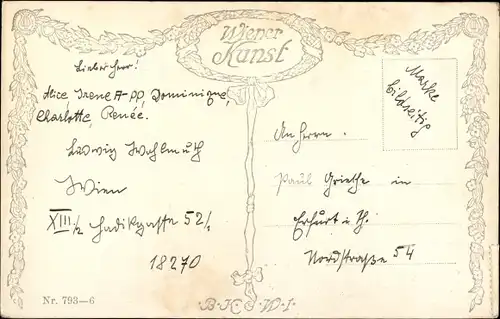 Wiener
Kunst
Lieber Herr!
Alice Irene A-pp, Dominique,
Charlotte, Renée.
Ludwig Wohlmuth
Wien
XIII/2 Hadikgasse 52/1
18270
Marke
bildseitig
An Herrn.
Paul Griethe in
Erfurt i. Th.
Nordstraße 54
Nr. 793—6
B.K.W.I.